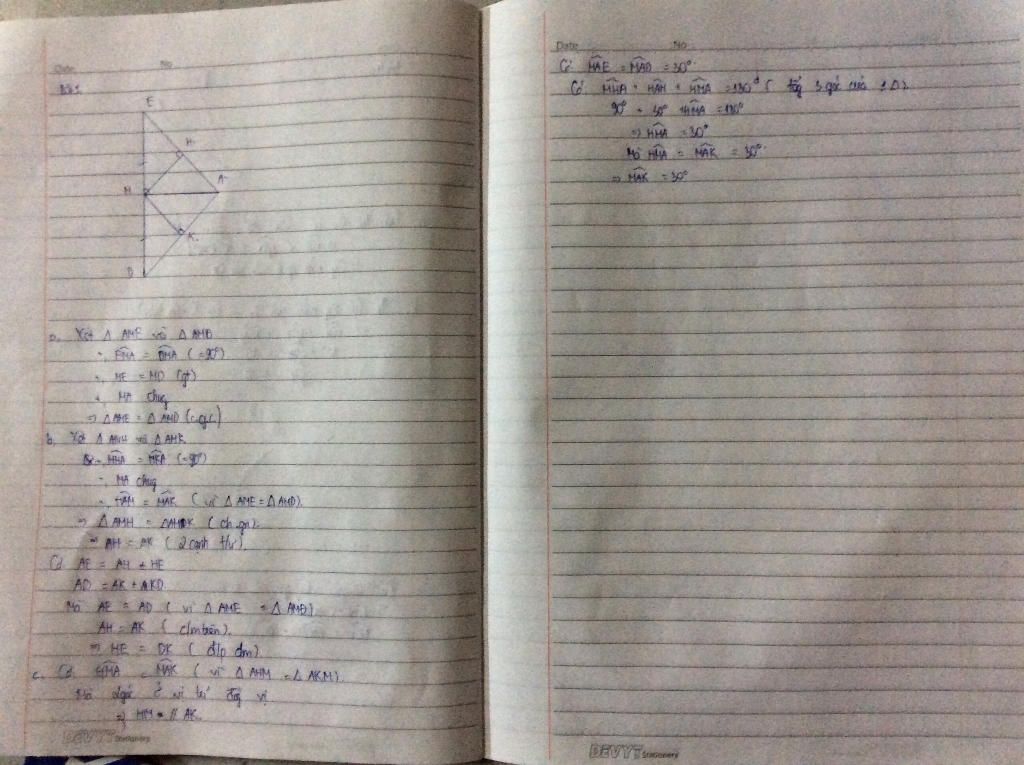 Date No
Bài 1
E
H
M
A
K
D
a. Xét △ AME và △ AMD
- EMA = DMA (=90°)
- ME = MD (gt)
- MA chug
=> △AME = △ AMD (c.g.c)
b. Xét △ AMH và △ AMK
- MHA = MKA (=90°)
- MA chug
- HAM = MAK ( vì △ AME = △ AMD).
=> △ AMH = △AMK ( ch.gn).
=> AH = AK ( 2 cạnh t/ư).
Có AE = AH + HE
AD = AK + KD.
Mà AE = AD ( vì △ AME = △ AMD)
AH = AK ( c/m trên).
=> HE = DK ( đ/p cm)
c. Có HMA = MAK ( vì △ AHM = △ AKM)
Mà 2 góc ở vị trí đồg vị
=> HM // AK.
DEVYT Stationery
Date No
Có MAE = MAD = 30°.
Có MHA + HAM + HMA = 180° ( tổg 3 góc của 1 △).
90° + 30° + HMA = 180°
=> HMA = 30°
Mà HMA = MAK = 30°
=> MAK = 30°
DEVYT Stationery